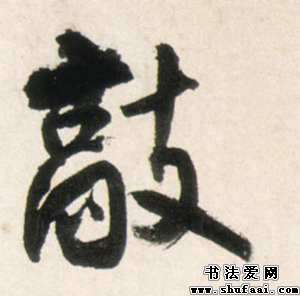 敲
书法爱网
www.shufaai.com